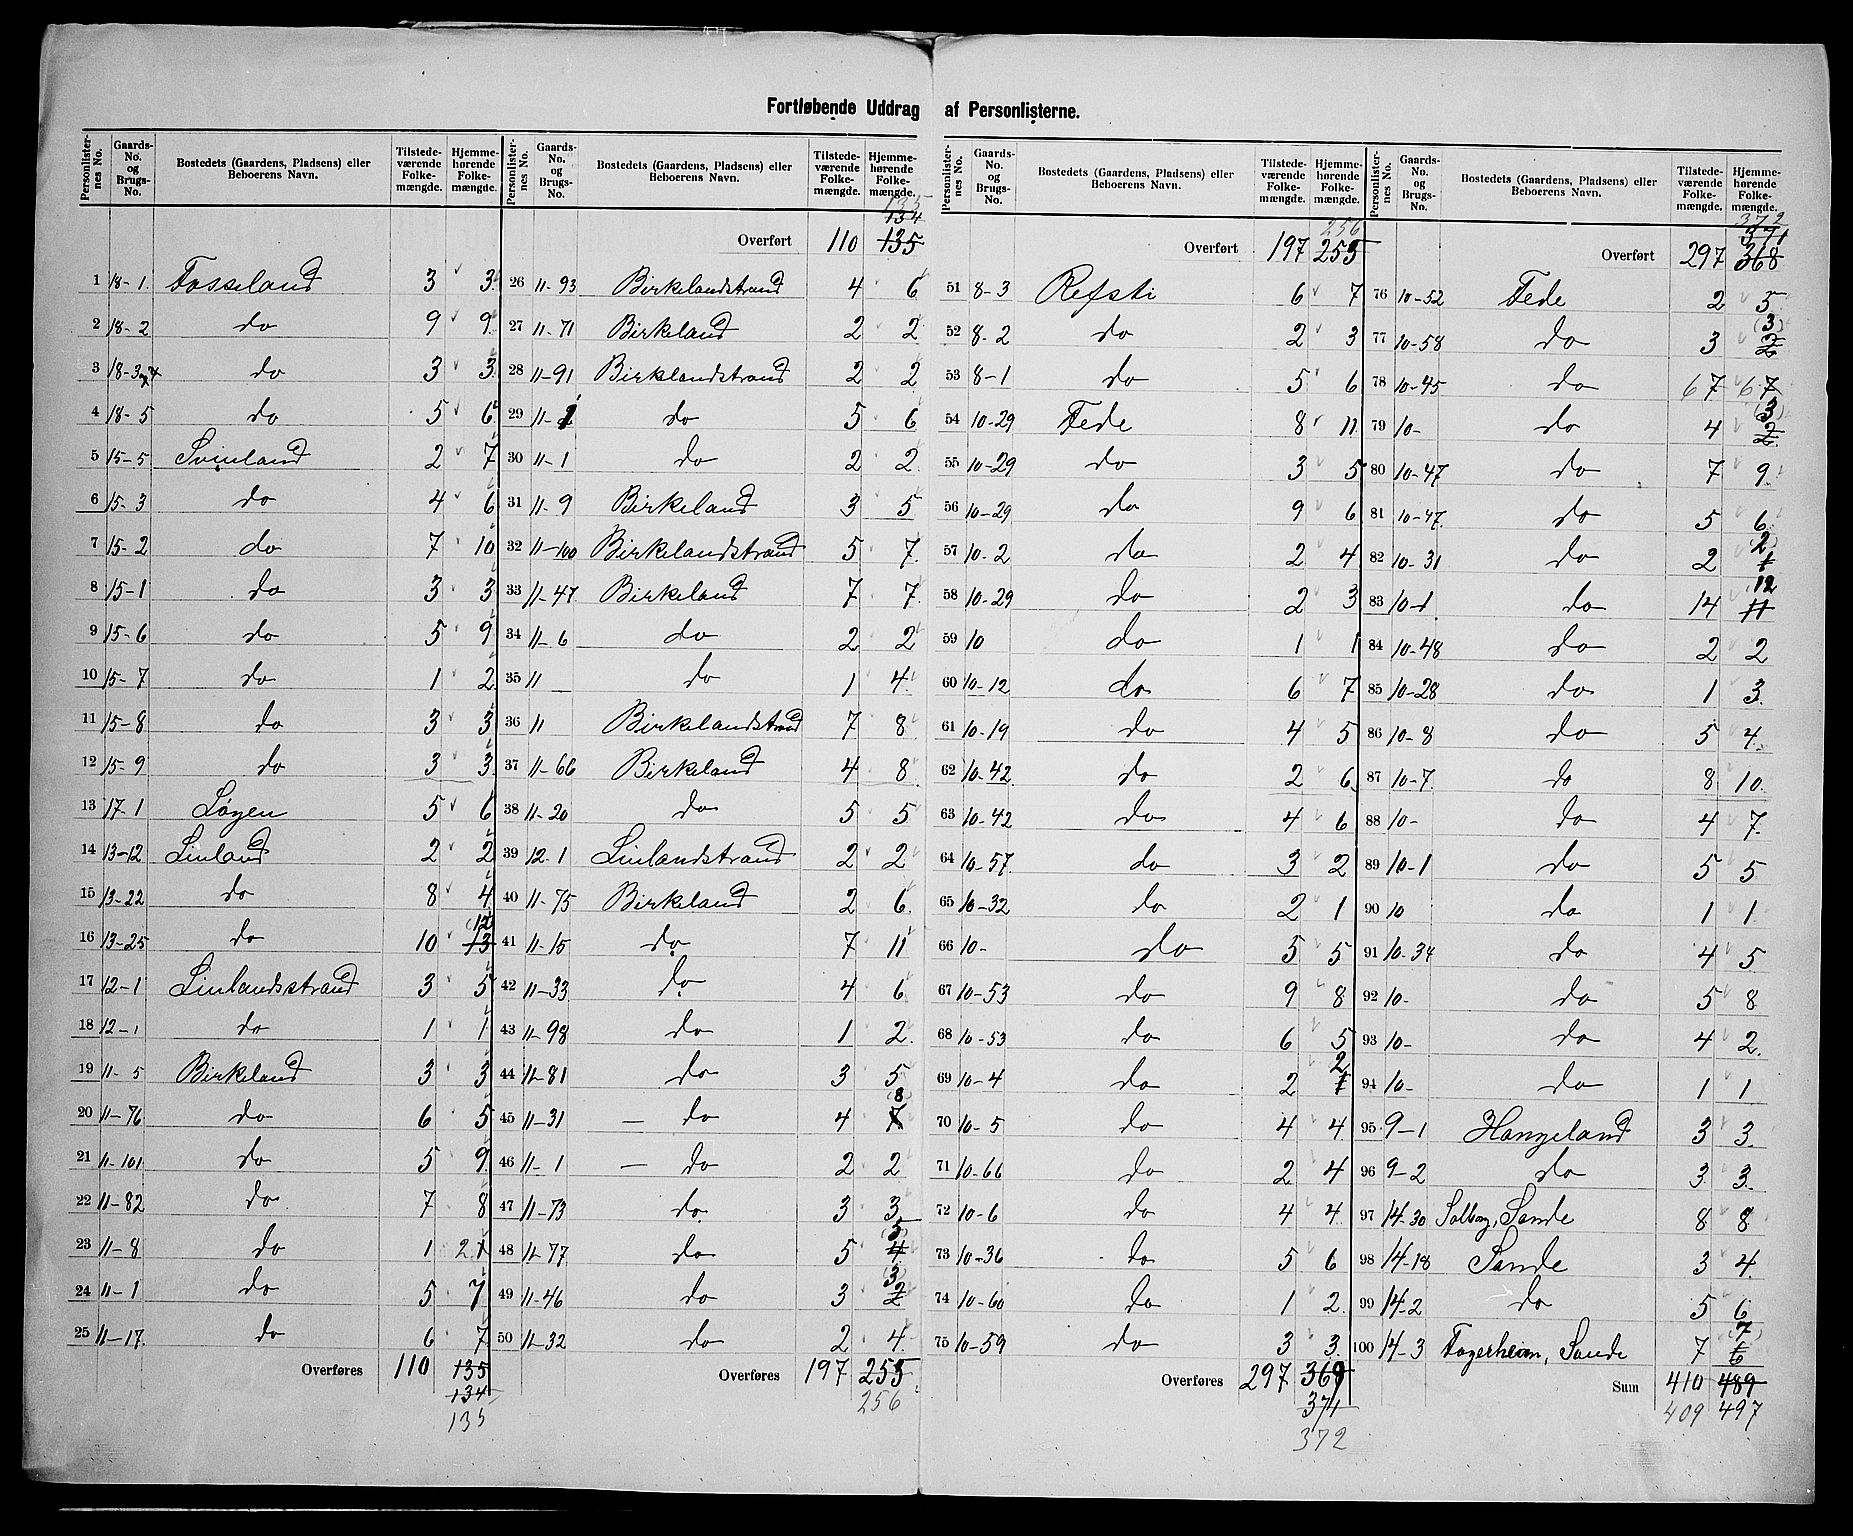 Fortløbende Uddrag af Personlisterne.
Personlister-nes No. Gaards-No. og Brugs-No. Bostedets (Gaardens, Pladsens) eller Beboerens Navn. Tilstede-værende Folke-mængde. Hjemme-hørende Folke-mængde.
1 18-1. Fosseland 3 3
2 18-2 do 9 9
3 18-3 do 3 3
4 18-5 do 5 6
5 15-5 Svinland 2 7
6 15-3 do 4 6
7 15-2 do 7 10
8 15-1 do 3 3
9 15-6 do 5 9
10 15-7 do 1 2
11 15-8 do 3 3
12 15-9 do 3 3
13 17-1 Løgen 5 6
14 13-12 Linland 2 2
15 13-22 do 8 4
16 13-25 do 10 13 12
17 12-1 Linlandsstrand 3 5
18 12-1 do 1 1
19 11-5 Birkeland 3 3
20 11-76 do 6 5
21 11-101 do 5 9
22 11-82 do 7 8
23 11-8 do 1 2 1
24 11-1 do 5 7
25 11-17. do 6 7
Overføres 110 135
134
135
Personlister-nes No. Gaards-No. og Brugs-No. Bostedets (Gaardens, Pladsens) eller Beboerens Navn. Tilstede-værende Folke-mængde. Hjemme-hørende Folke-mængde.
135
134
Overført 110 135
26 11-93 Birkelandstrand 4 6
27 11-71 Birkeland 2 2
28 11-91 Birklandstrand 2 2
29 11-1 do 5 6
30 11-1 do 2 2
31 11-9 Birkeland 3 5
32 11-100 Birkelandstrand 5 7
33 11-47 Birkeland 7 7
34 11-6 do 2 2
35 11 do 1 4
36 11 Birkelandstrand 7 8
37 11-66 Birkeland 4 8
38 11-20 do 5 5
39 12-1 Linlandstrand 2 2
40 11-75 Birkeland 2 6
41 11-15 do 7 11
42 11-33 do 4 6
43 11-98 do 1 2
44 11-81 do 3 5
45 11-31 — do 4 7 8
46 11-1 — do 2 2
47 11-73 do 3 3
48 11-77 do 5 4 5
49 11-46 do 3 2 3
50 11-32 do 2 4
Overføres 197 255
256
Personlister-nes No. Gaards-No. og Brugs-No. Bostedets (Gaardens, Pladsens) eller Beboerens Navn. Tilstede-værende Folke-mængde. Hjemme-hørende Folke-mængde.
256
Overført 197 255
51 8-3 Refsti 6 7
52 8-2 do 2 3
53 8-1 do 5 6
54 10-29 Fede 8 11
55 10-29 do 3 5
56 10-29 do 9 6
57 10-2 do 2 4
58 10-29 do 2 3
59 10 do 1 1
60 10-12 do 6 7
61 10-19 do 4 5
62 10-42 do 2 6
63 10-42 do 4 6
64 10-57. do 3 2
65 10-32 do 2 1
66 10- do 5 5
67 10-53 do 9 8
68 10-53 do 6 5
69 10-4 do 2 1 2
70 10-5 do 4 4
71 10-66 do 2 4
72 10-6 do 4 4
73 10-36 do 5 6
74 10-60 do 1 2
75 10-59 do 3 3
Overføres 297 369
371
372
Personlister-nes No. Gaards-No. og Brugs-No. Bostedets (Gaardens, Pladsens) eller Beboerens Navn. Tilstede-værende Folke-mængde. Hjemme-hørende Folke-mængde.
372
371
Overført 297 368
76 10-52 Fede 2 5
77 10-58 do 3 2 (3)
78 10-45 do 67 67
79 10- do 4 2 (3)
80 10-47 do 7 9
81 10-47. do 5 6
82 10-31 do 2 1 2
83 10-1 do 14 11 12
84 10-48 do 2 2
85 10-28 do 1 3
86 10-8 do 5 4
87 10-7. do 8 10
88 10- do 4 7
89 10-1 do 5 5
90 10 do 1 1
91 10-34 do 4 5
92 10- do 5 8
93 10- do 4 2
94 10- do 1 1
95 9-1 Hangeland 3 3
96 9-2 do 3 3
97 14-30 Solborg, Sande 8 8
98 14-18 Sande 3 4
99 14-2 do 5 6
100 14-3 Fagerheim, Sande 7 6 (7)
Sum 410 489
409 497